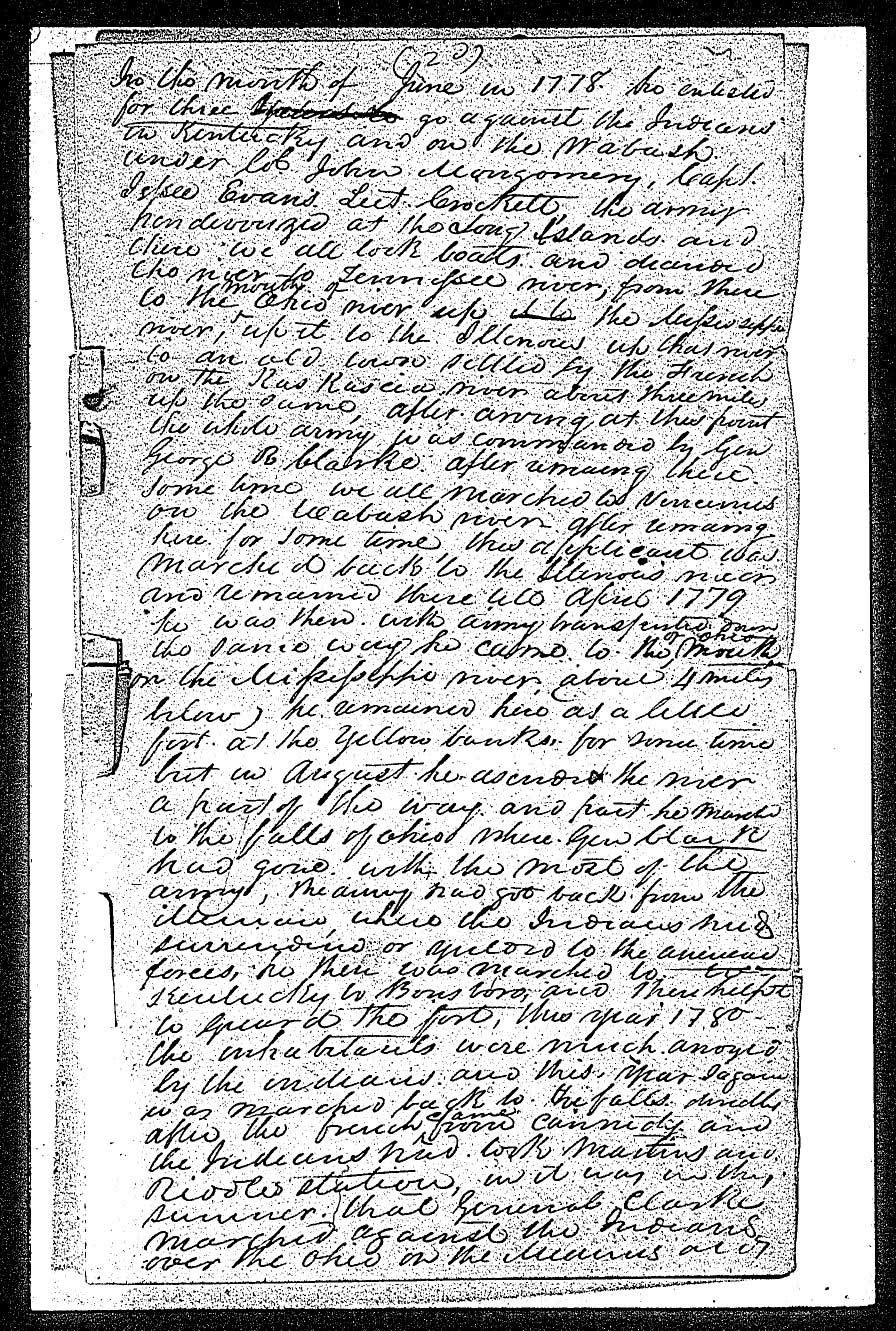 (2d)
In the month of June in 1778. he enlisted
for three go against the Indians
in Kentucky and on the Wabash.
under Col John Montgomery, Capt.
Jessee Evans. Leet. Crockett, the army
rendevouzed at the Long Islands and
there we all took boats. and decended
the river to Tennessee river, from there
to the mouth of Ohio river up it to the Mississippi
river, up it to the Illenois up that river
to an old town settled by the French
on the Kas Kascia river about three miles
up the same, after arving at this point
the whole army was commanded by Gen
George R Clarke. after remaing there.
some time we all marched to Vincennes
on the Wabash river after remaing
here for some time this applicant was
marched back to the Illenois river
and remained there till April 1779
he was then with army transported down
the same way he came to the mouth of Ohio
on the Missessippi river, about 4 miles
below) he remained here at a little
fort at the Yellow banks. for some time
but in August he ascended the river
a part of the way. and part he marched
to the falls of Ohio where Gen Clark
had gone. with the most of the
army, the army had got back from the
where the Indians had
surrendered or yielded to the
forces, he then was marched to
Kentucky to Bonsboro, and then helped
to guard the fort, this year 1780-
the inhabitants were much anoyed
by the indians. and this year I again
was marched back to the falls. directly
after the french came from cannidy and
the Indians had took Martins and
Riddles station, in it was in the,
summer. that General Clarke
marched against the Indians
over the Ohio on the